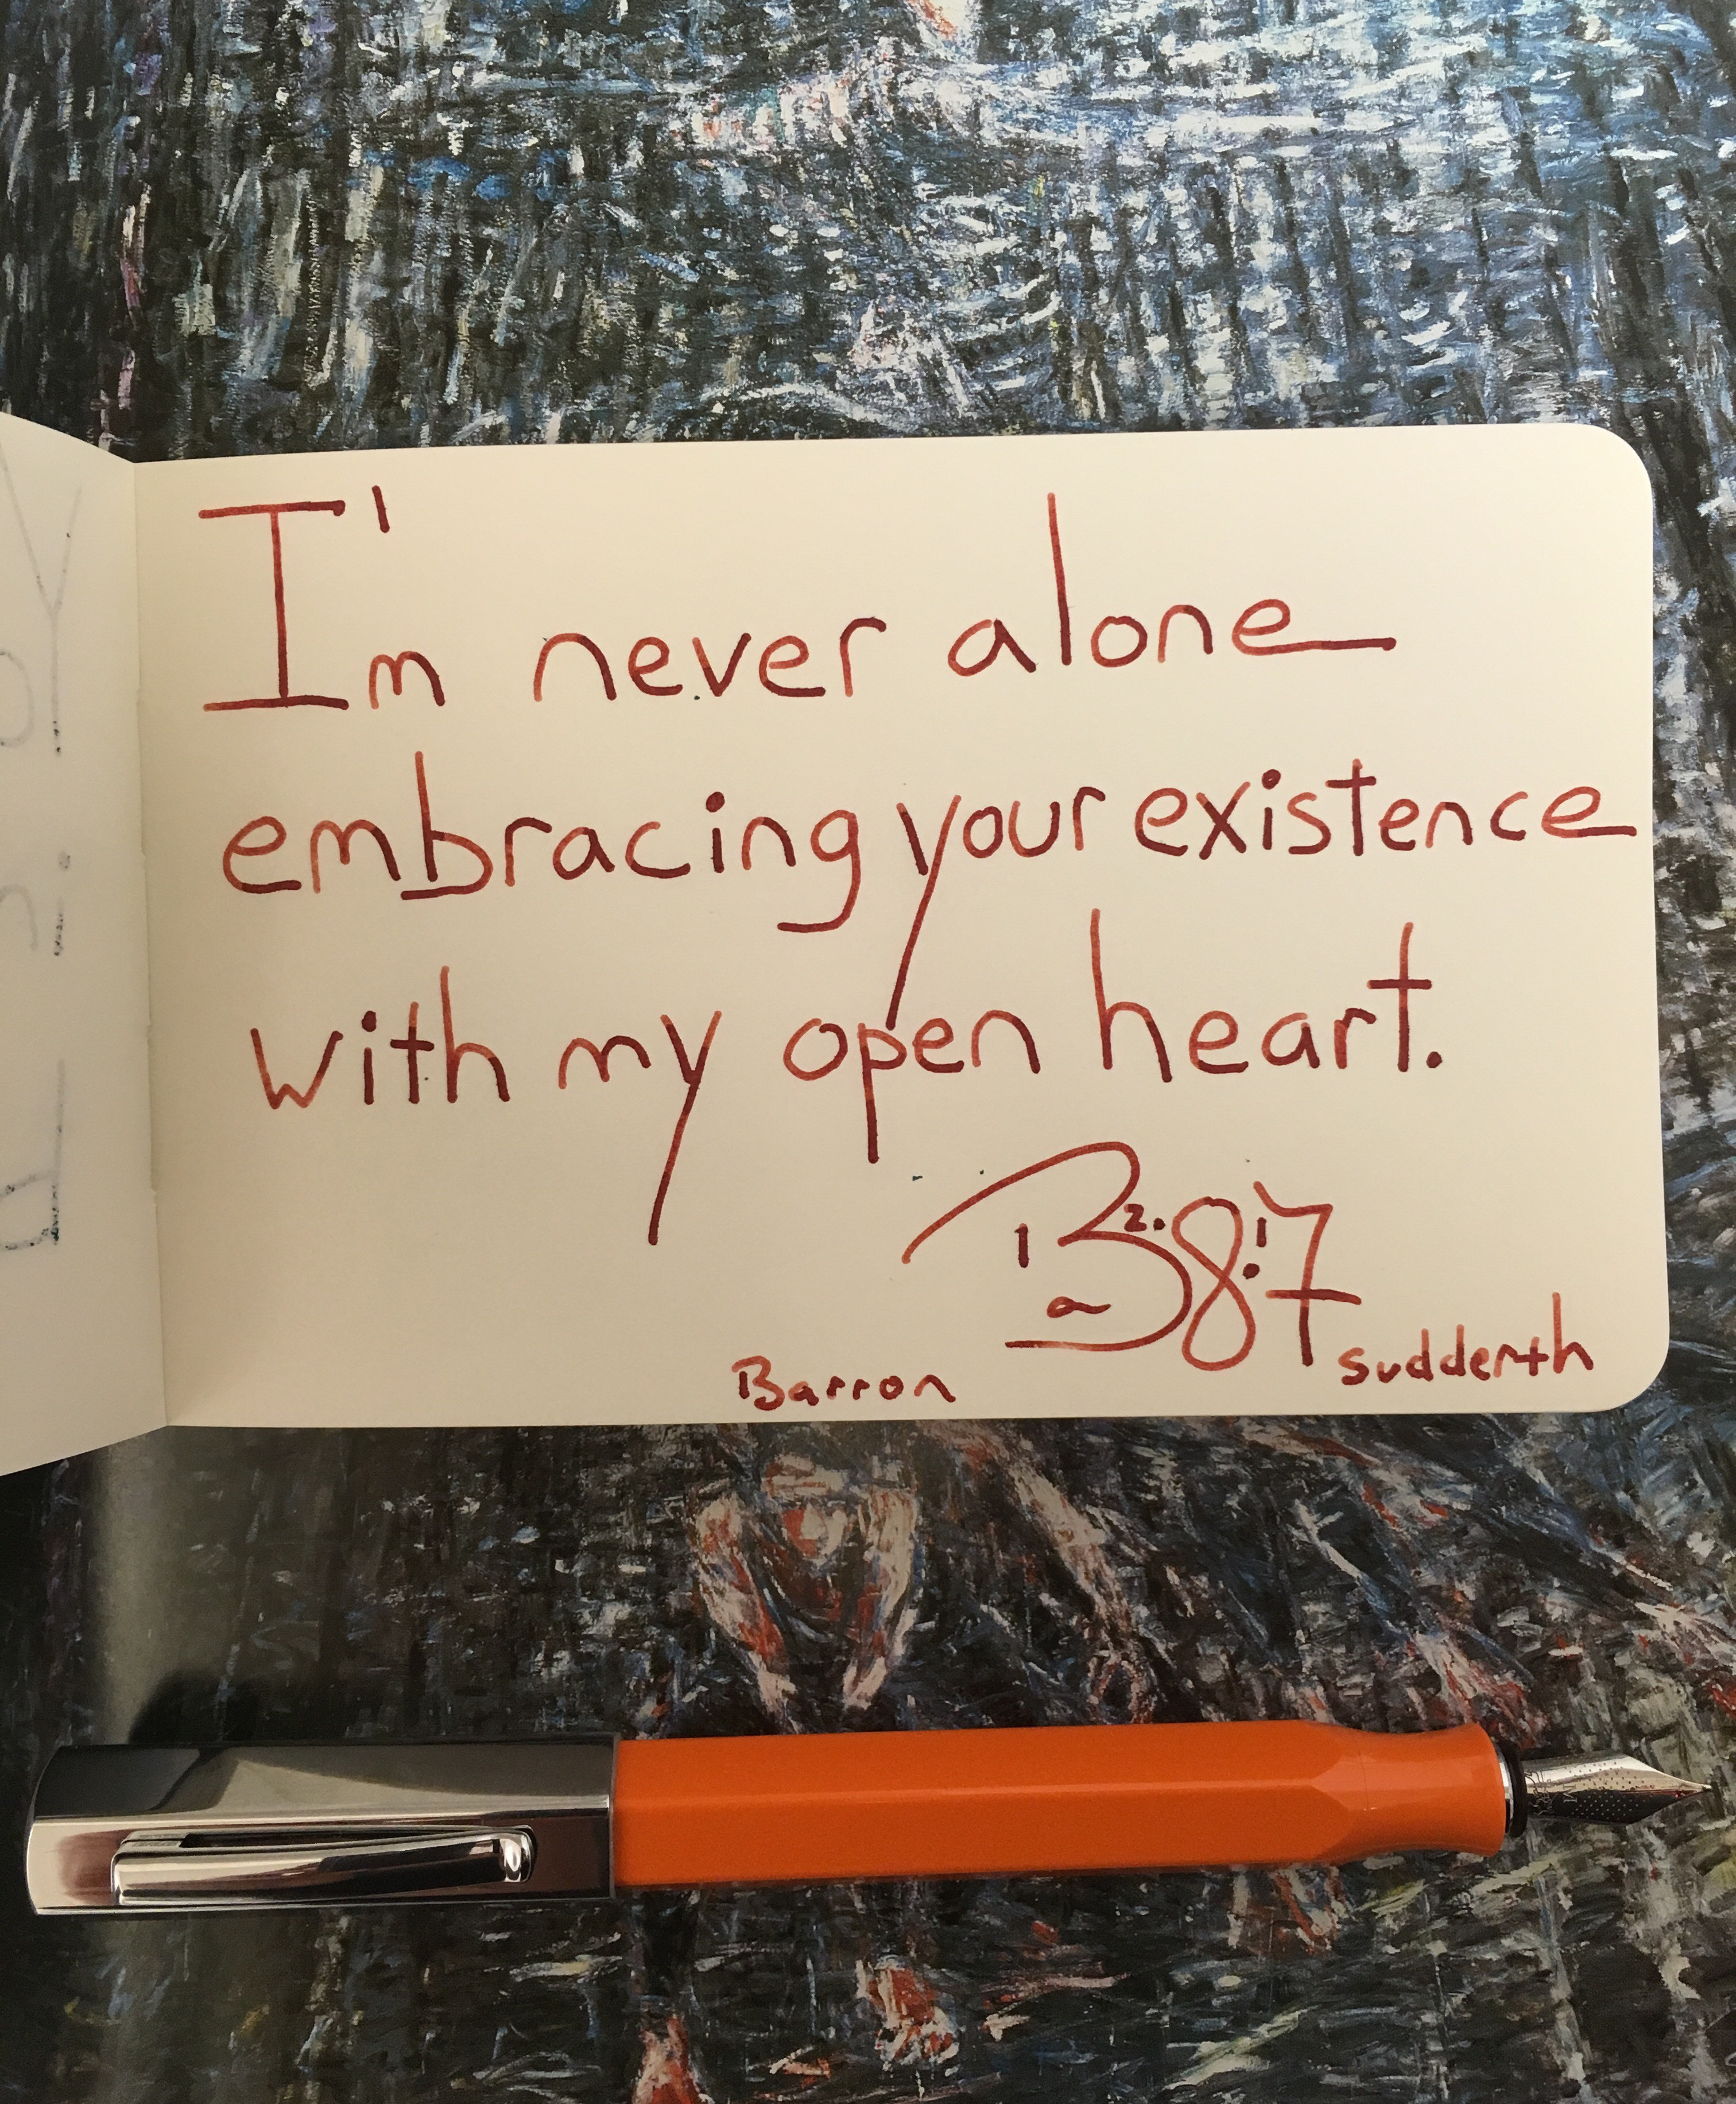 I'm never alone
embracing your existence
with my open heart.
Barron
suddenth